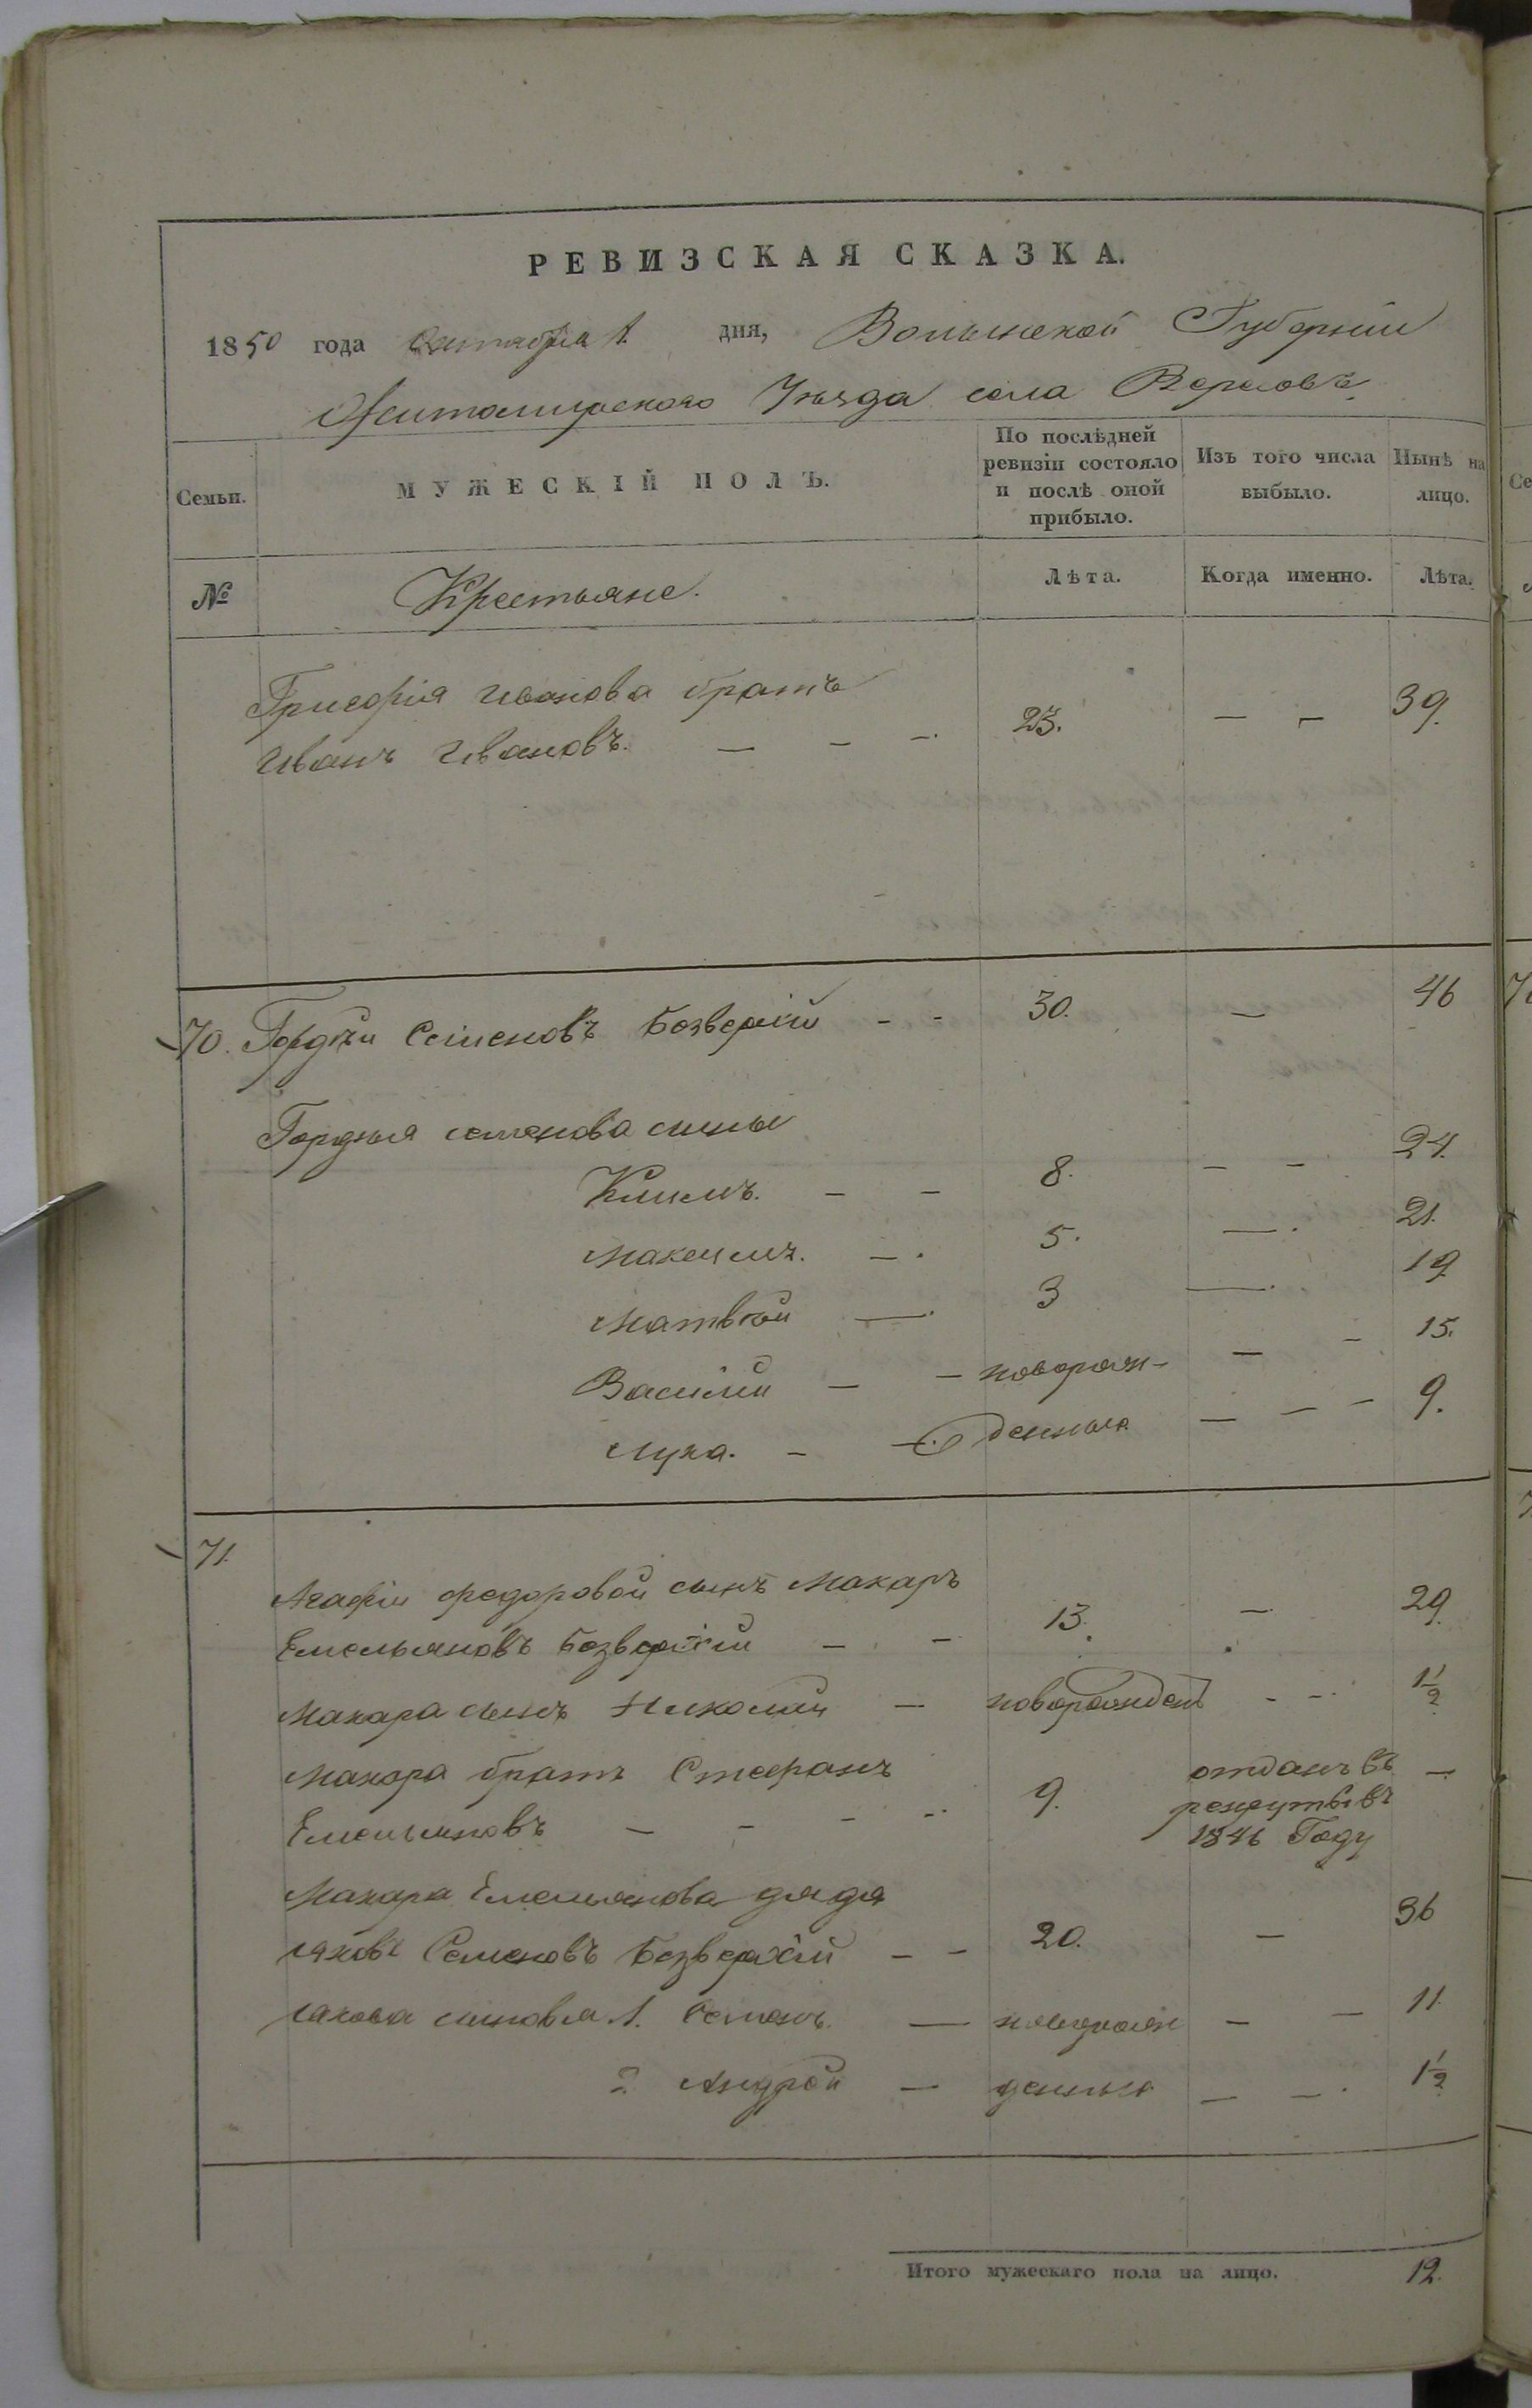 РЕВИЗСКАЯ СКАЗКА.
1850 года Октября 1. дня, Волынской Губернии
Житомирского Уѣзда села
Семьи. МУЖЕСКІЙ ПОЛЪ. По послѣдней ревизіи состояло и послѣ оной прибыло. Изъ того числа выбыло. Нынѣ на лицо.
№ Крестьяне. Лѣта. Когда именно. Лѣта.
Григорія Иванова братъ
Иванъ Ивановъ. — — —. 23. — — 39.
70. Гордѣй Семеновъ Безверхій - - 30. — 46
Гордѣя Семенова сыны
Климъ. — — 8. — — 24.
Максимъ. —. 5. —. 21.
Матвѣй —. 3 —. 19
Василій — — новорож- — — 15.
Лука. — —. денные — — — 9.
71.
Агафіи Федоровой сынъ Макаръ
Емельяновъ Безверхій — — 13. — 29.
Макара сынъ Николай — новорожден - - 1½
Макара братъ Стефанъ
Емельяновъ — — — — 9. отданъ въ рекруты въ 1846 Году —
Макара Емельянова дядя
Яковъ Семеновъ Безверхій — — 20. — 36
Якова сыновья 1. Семенъ. — новорож — — 11
2 Андрей — денные — —. 1½
Итого мужескаго пола на лицо. 12.